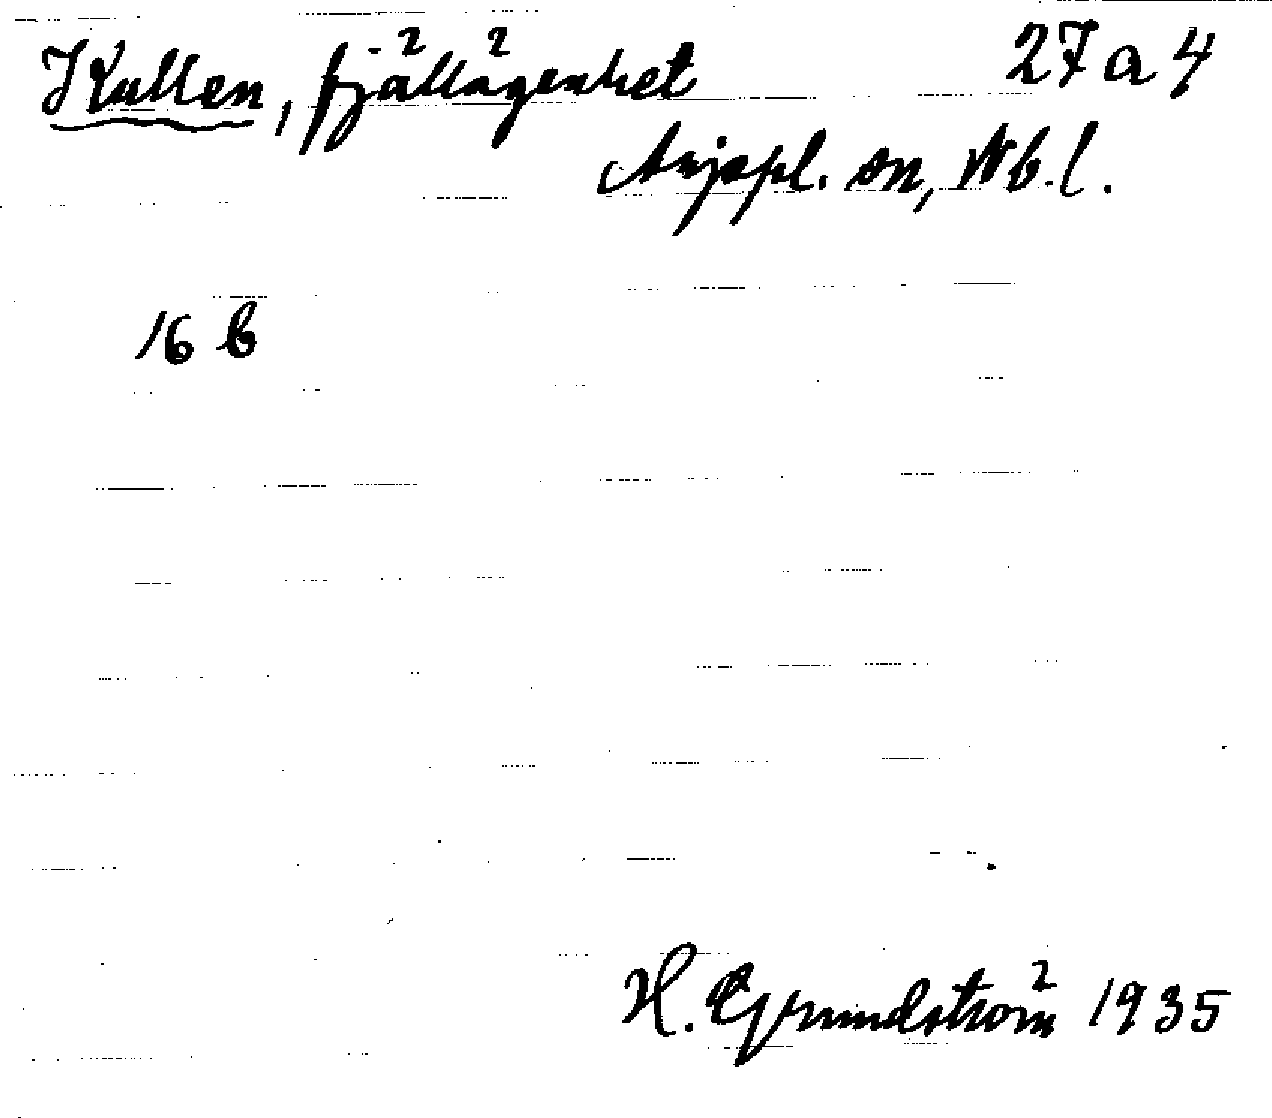 Kullen, fjällägenhet 27 a 4
Arjepl. sn, Vb. l.
16 b
H. Grundström 1935